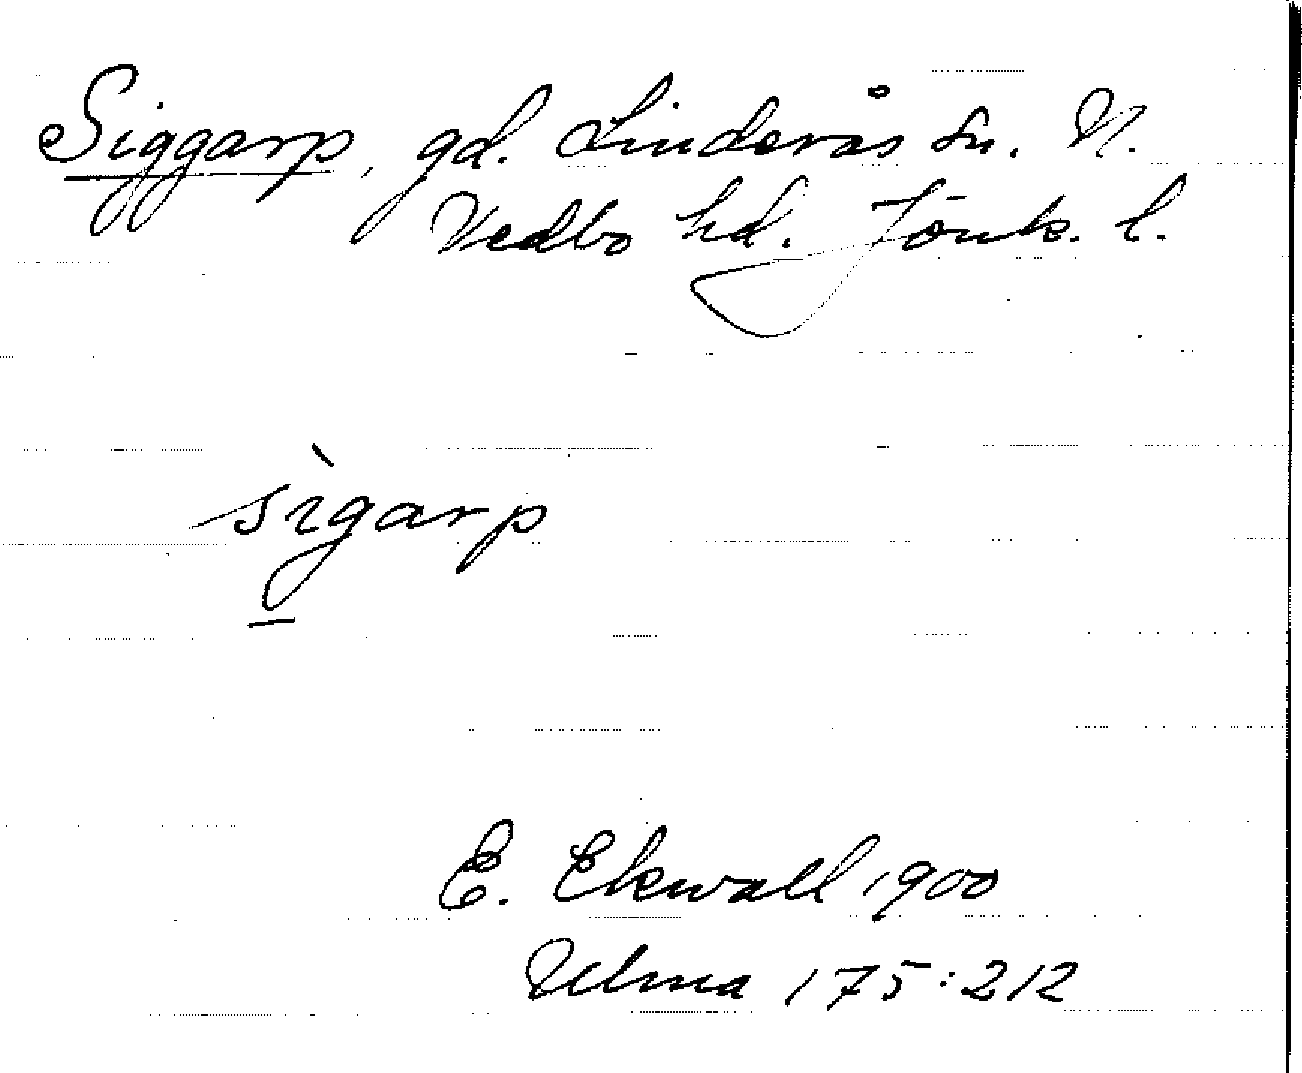 Siggarp, gd. Linderås sn. N.
Vedbo hd. Jönk. l.
sìgarp
E. Ekwall 1900
Ulma 175:212